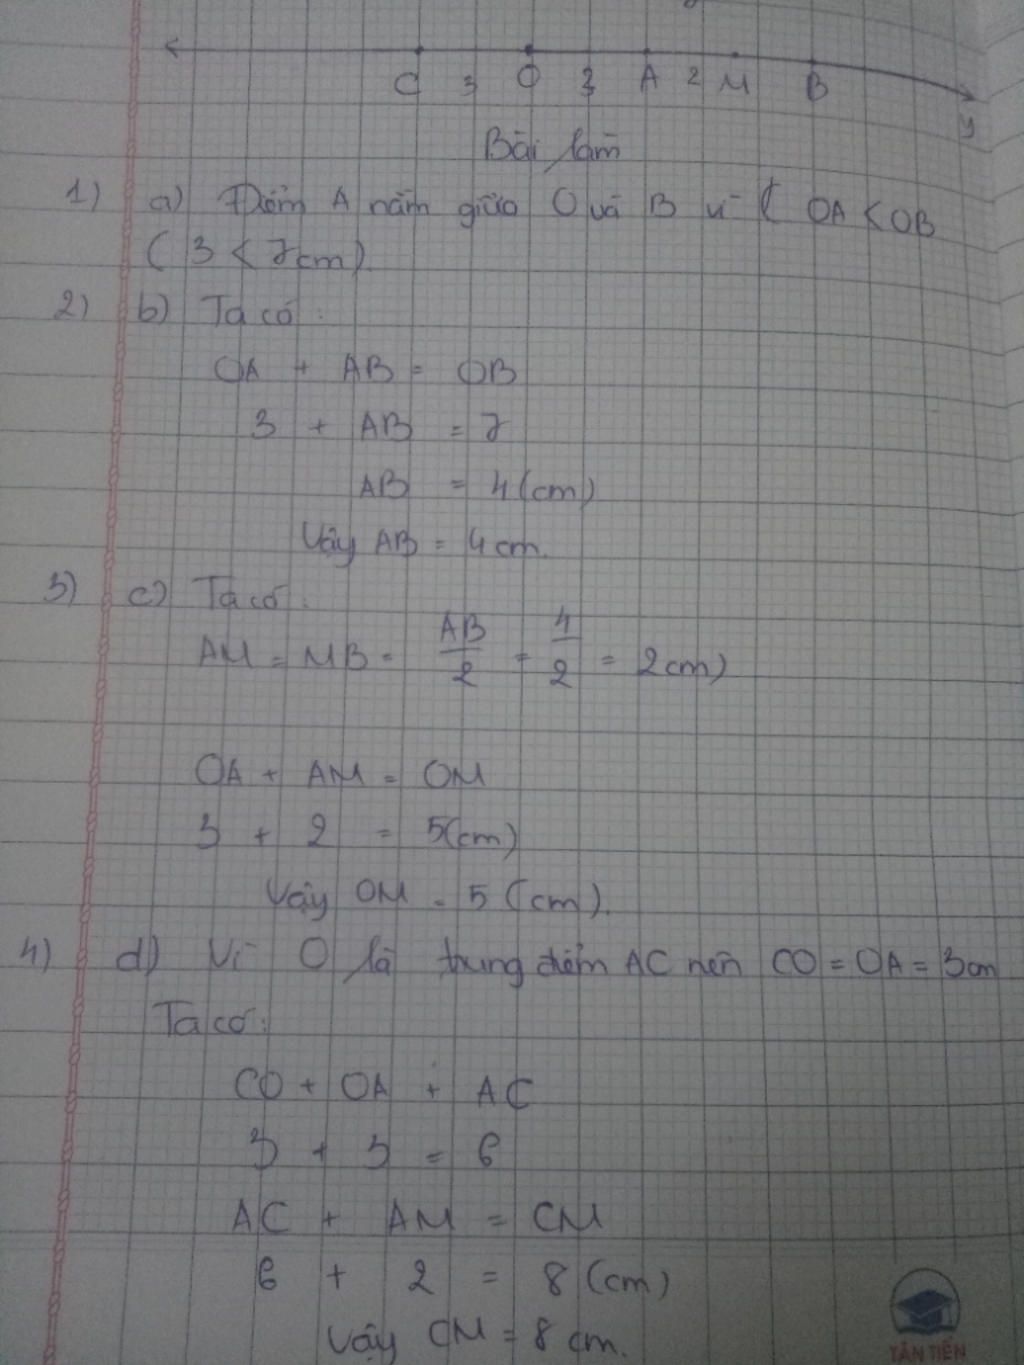 C 3 O 3 A 2 M B
y
Bài làm
1) a) Điểm A nằm giữa O và B vì ( OA < OB
( 3 < 7cm).
2) b) Ta có :
OA + AB = OB
3 + AB = 7
AB = 4 (cm)
Vậy AB = 4 cm.
3) c) Ta có :
AM = MB = AB/2 = 4/2 = 2 cm)
OA + AM = OM
3 + 2 = 5(cm)
Vậy OM = 5 (cm).
4) d) Vì O là trung điểm AC nên CO = OA = 3cm
Ta có :
CO + OA + AC
3 + 3 = 6
AC + AM = CM
6 + 2 = 8 (cm)
Vậy CM = 8 cm.
TÂN TIẾN